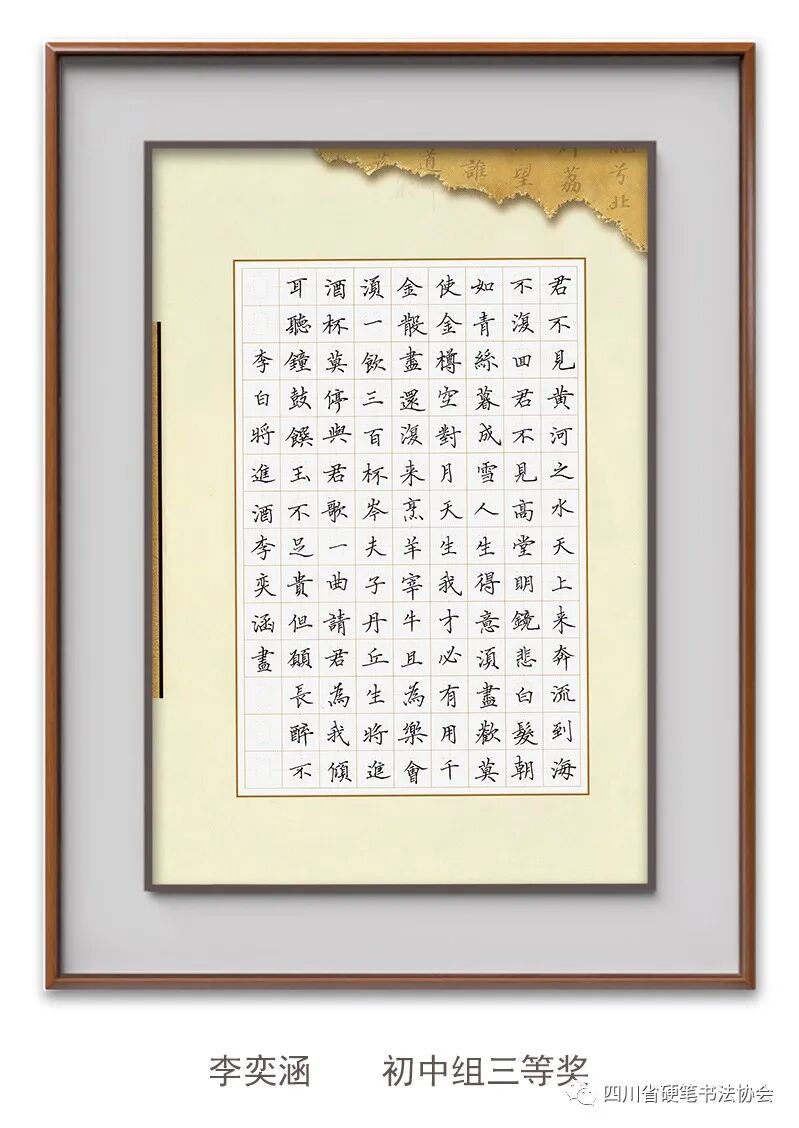 兮北
荔
望
誰
道
君不見黄河之水天上来奔流到海
不復回君不見高堂明鏡悲白髮朝
如青絲暮成雪人生得意須盡歡莫
使金樽空對月天生我才必有用千
金散盡還復来烹羊宰牛且為樂會
須一飲三百杯岑夫子丹丘生將進
酒杯莫停與君歌一曲請君為我傾
耳聽鐘鼓饌玉不足貴但願長醉不
李白將進酒李奕涵書
李奕涵 初中组三等奖
四川省硬笔书法协会